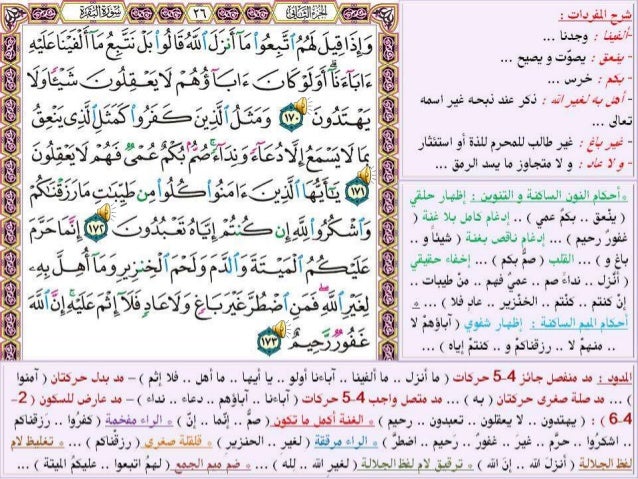 الجزء الثاني
٢٦
سورة البقرة
وَإِذَا قِيلَ لَهُمُ ٱتَّبِعُوا۟ مَآ أَنزَلَ ٱللَّهُ قَالُوا۟ بَلْ نَتَّبِعُ مَآ أَلْفَيْنَا عَلَيْهِ
ءَابَآءَنَآ أَوَلَوْ كَانَ ءَابَآؤُهُمْ لَا يَعْقِلُونَ شَيْـًٔا وَلَا
يَهْتَدُونَ ١٧٠ وَمَثَلُ ٱلَّذِينَ كَفَرُوا۟ كَمَثَلِ ٱلَّذِى يَنْعِقُ
بِمَا لَا يَسْمَعُ إِلَّا دُعَآءً وَنِدَآءً صُمٌّۢ بُكْمٌ عُمْىٌ فَهُمْ لَا يَعْقِلُونَ
١٧١ يَـٰٓأَيُّهَا ٱلَّذِينَ ءَامَنُوا۟ كُلُوا۟ مِن طَيِّبَـٰتِ مَا رَزَقْنَـٰكُمْ
وَٱشْكُرُوا۟ لِلَّهِ إِن كُنتُمْ إِيَّاهُ تَعْبُدُونَ ١٧٢ إِنَّمَا حَرَّمَ
عَلَيْكُمُ ٱلْمَيْتَةَ وَٱلدَّمَ وَلَحْمَ ٱلْخِنزِيرِ وَمَآ أُهِلَّ بِهِۦ
لِغَيْرِ ٱللَّهِ فَمَنِ ٱضْطُرَّ غَيْرَ بَاغٍ وَلَا عَادٍ فَلَآ إِثْمَ عَلَيْهِ إِنَّ ٱللَّهَ
غَفُورٌ رَّحِيمٌ ١٧٣
شرح المفردات :
- ألفينا : وجدنا ...
- ينعق : يصوّت و يصيح ...
- بكم : خرس ...
- أهل به لغير الله : ذكر عند ذبحه غير اسمه
تعالى ...
- غير باغ : غير طالب للمحرم للذة أو استئثار
- و لا عاد : و لا متجاوز ما يسد الرمق ...
* أحكام النون الساكنة و التنوين : إظهار حلقي
( ينْعق .. بكمٌ عمي ) .. إدغام كامل بلا غنة (
غفورٌ رحيم ) ... إدغام ناقص بغنة ( شيئاً و ..
باغٍ و ) ... القلب ( صمٌّ بكم ) ... إخفاء حقيقي
( أنْزل .. نداءً صم .. عميٌ فهم .. منْ طيبات ..
إنْ كنتم .. كنْتم .. الخنْزير .. عادٍ فلا ) ... *
أحكام الميم الساكنة : إظهار شفوي ( آباؤهمْ لا
.. منهمْ لا .. رزقناكمْ و .. كنتمْ إياه ) ...
المدود : مد منفصل جائز 4-5 حركات ( ما أنزل .. ما ألفينا .. آباءنا أولو .. يا أيها .. ما أهل .. فلا إثم ) – مد بدل حركتان ( آمنوا
) ... مد صلة صغرى حركتان ( به ) ... مد متصل واجب 4-5 حركات ( آباءنا .. آباؤهم .. دعاء .. نداء ) – مد عارض للسكون ( 2-
4-6 ) : ( يهتدون .. لا يعقلون .. تعبدون .. رحيم ) * الغنة أكمل ما تكون ( صمٌّ .. إنّما .. إنّ ) * الراء مفخمة ( كفرُوا .. رَزقناكم
.. اشكرُوا .. حرَّم .. غيرَ .. غفورٌ .. رَحيم .. اضطرَّ ) * الراء مرققة ( لغيرِ .. الخنزيرِ ) ... * قلقلة صغرى ( رزقْناكم ) ... * تغليظ لام
لفظ الجلالة ( أنزلَ الله .. إنَّ الله ) * ترقيق لام لفظ الجلالة ( لغيرِ الله .. لله ) ... * ضم ميم الجمع ( لهمُ اتبعوا .. عليكمُ الميتة ) ...